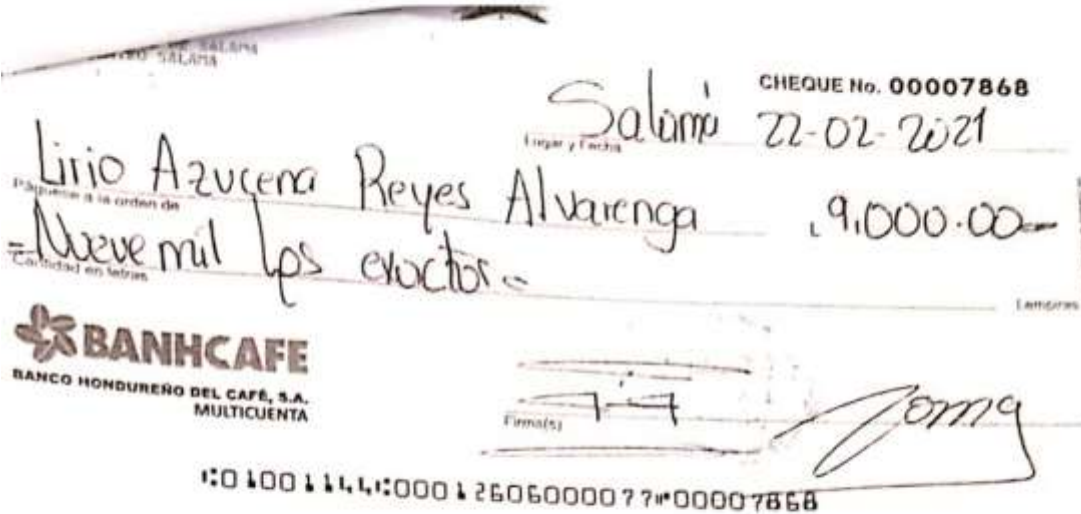 SALAMA
SALAMA
CHEQUE No. 00007868
Salamá 22-02-2021
Lugar y Fecha
Lirio Azucena Reyes Alvarenga 9,000.00
Páguese a la orden de
=Nueve mil Lps exactos=
Cantidad en letras
Lempiras
BANHCAFE
BANCO HONDUREÑO DEL CAFÉ, S.A.
MULTICUENTA
Firma(s)
00007868